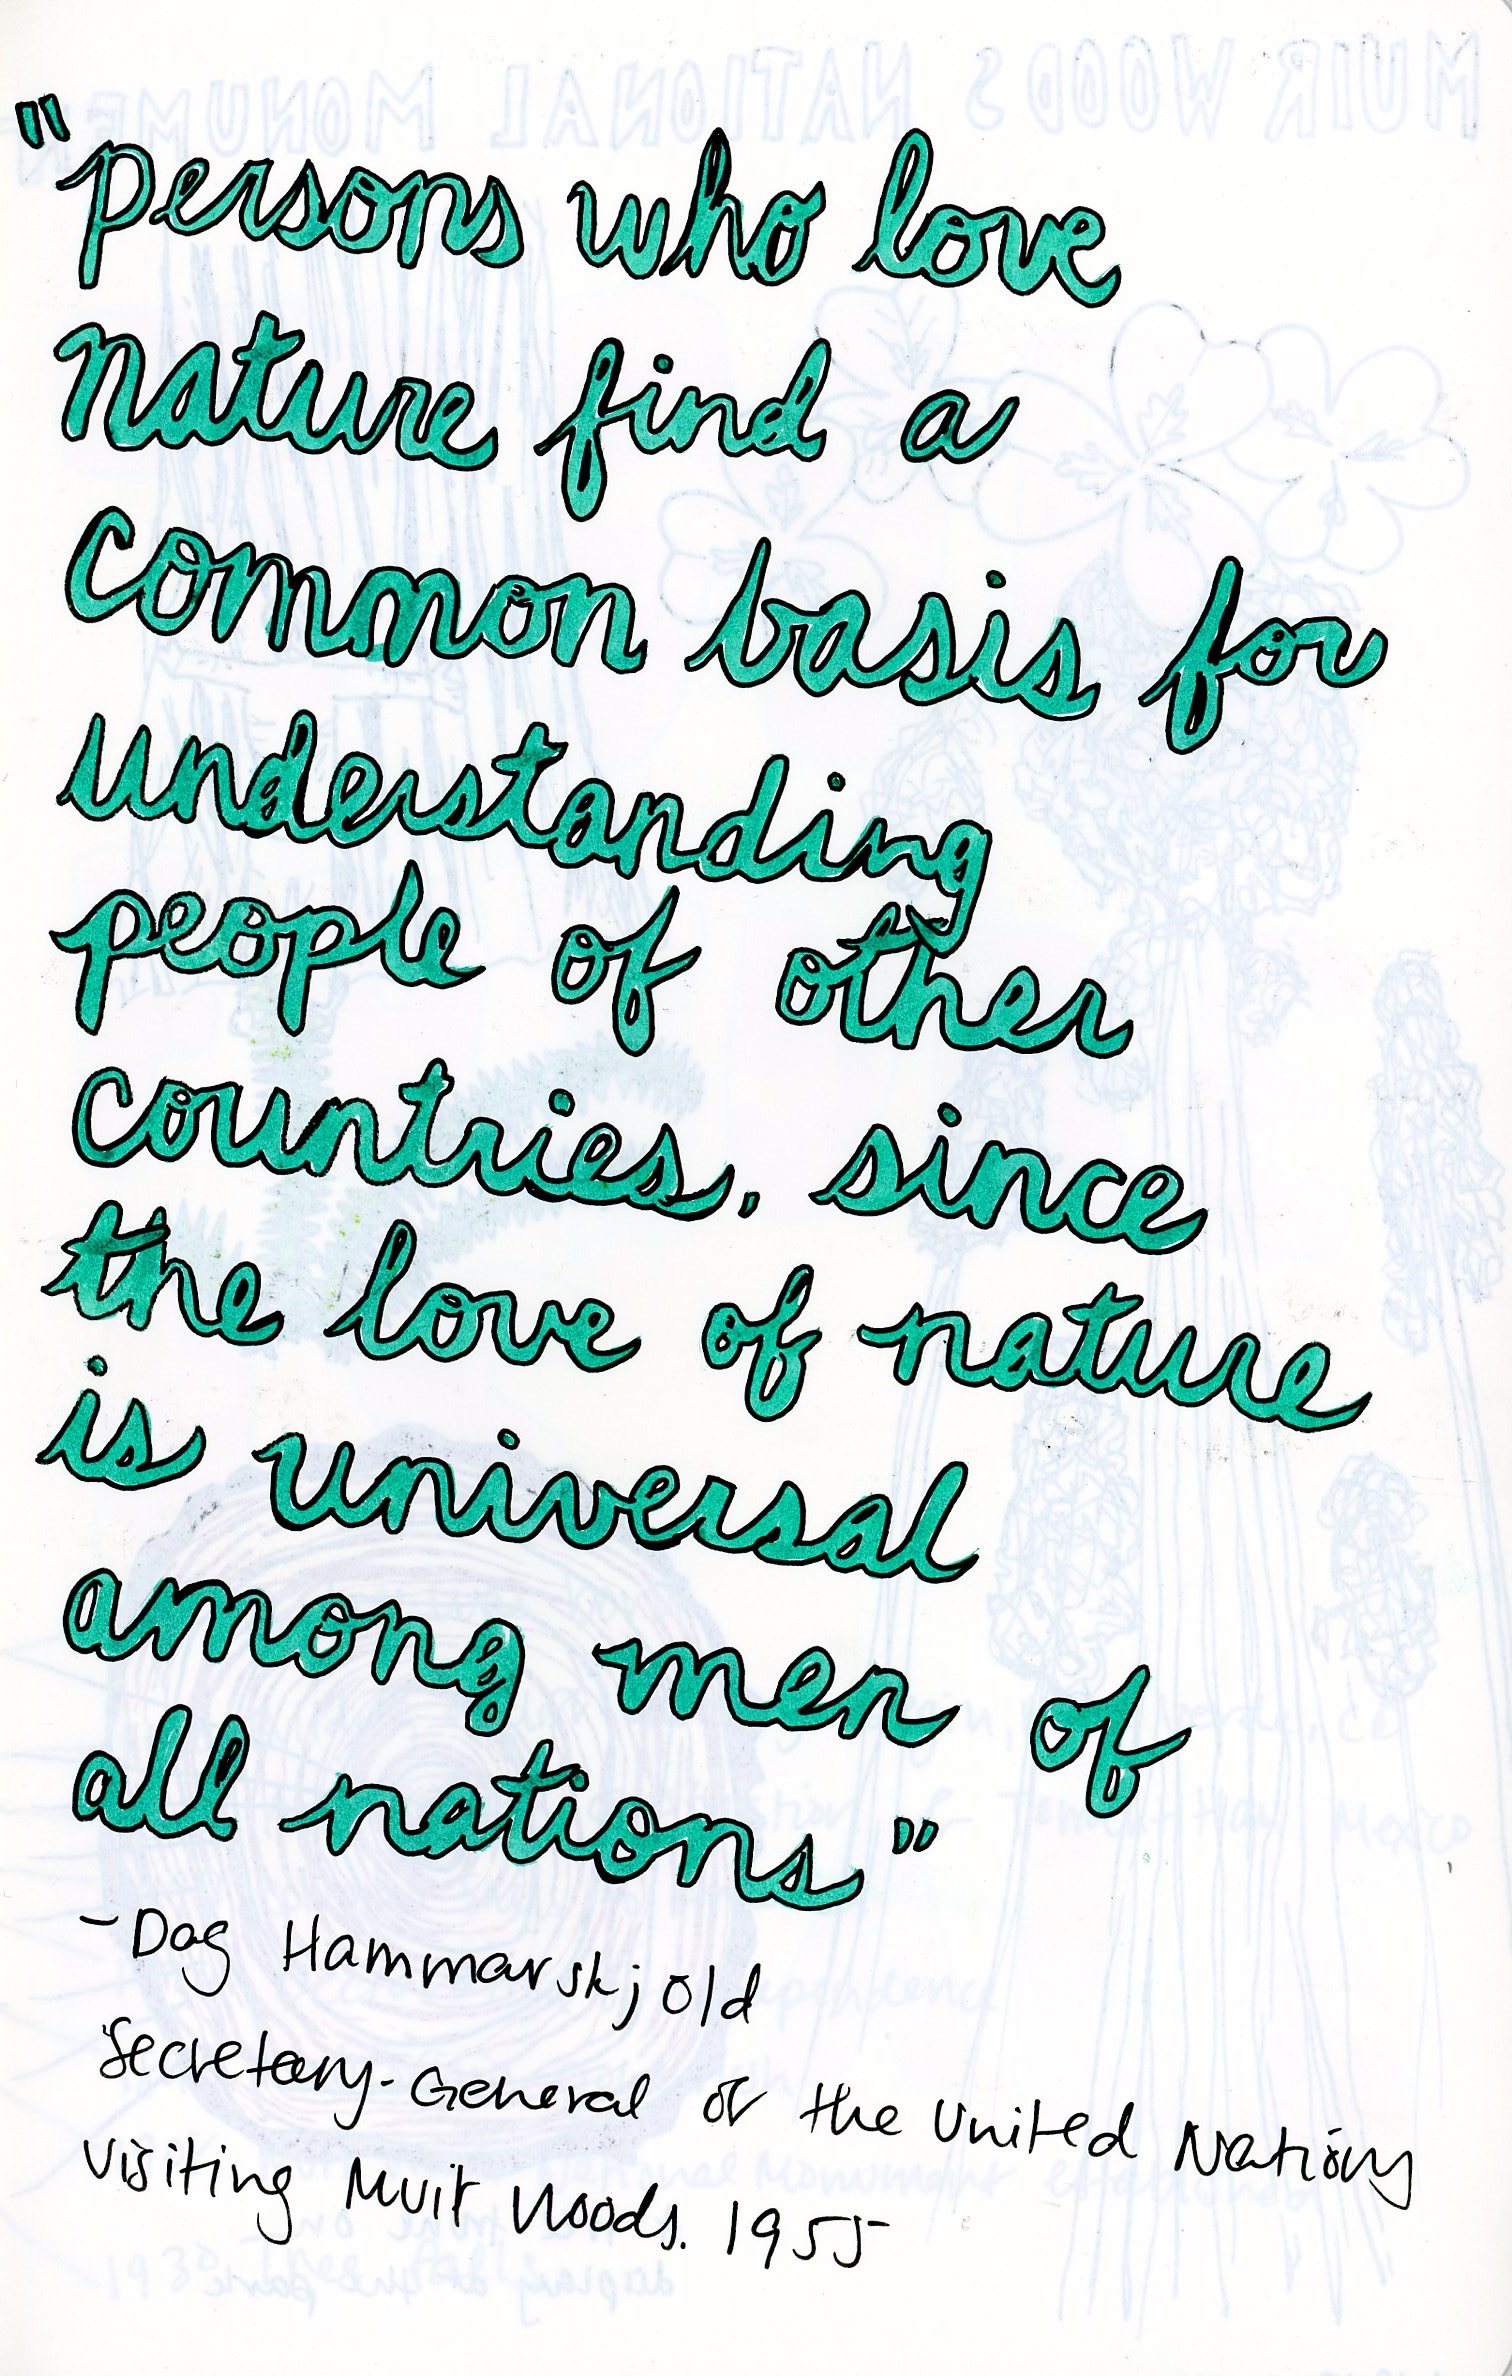 "persons who love
nature find a
common basis for
understanding
people of other
countries, since
the love of nature
is universal
among men of
all nations"
- Dag Hammarskjold
Secretary-General of the United Nations
visiting Muir Woods. 1955
MUIR WOODS NATIONAL MONUMEN